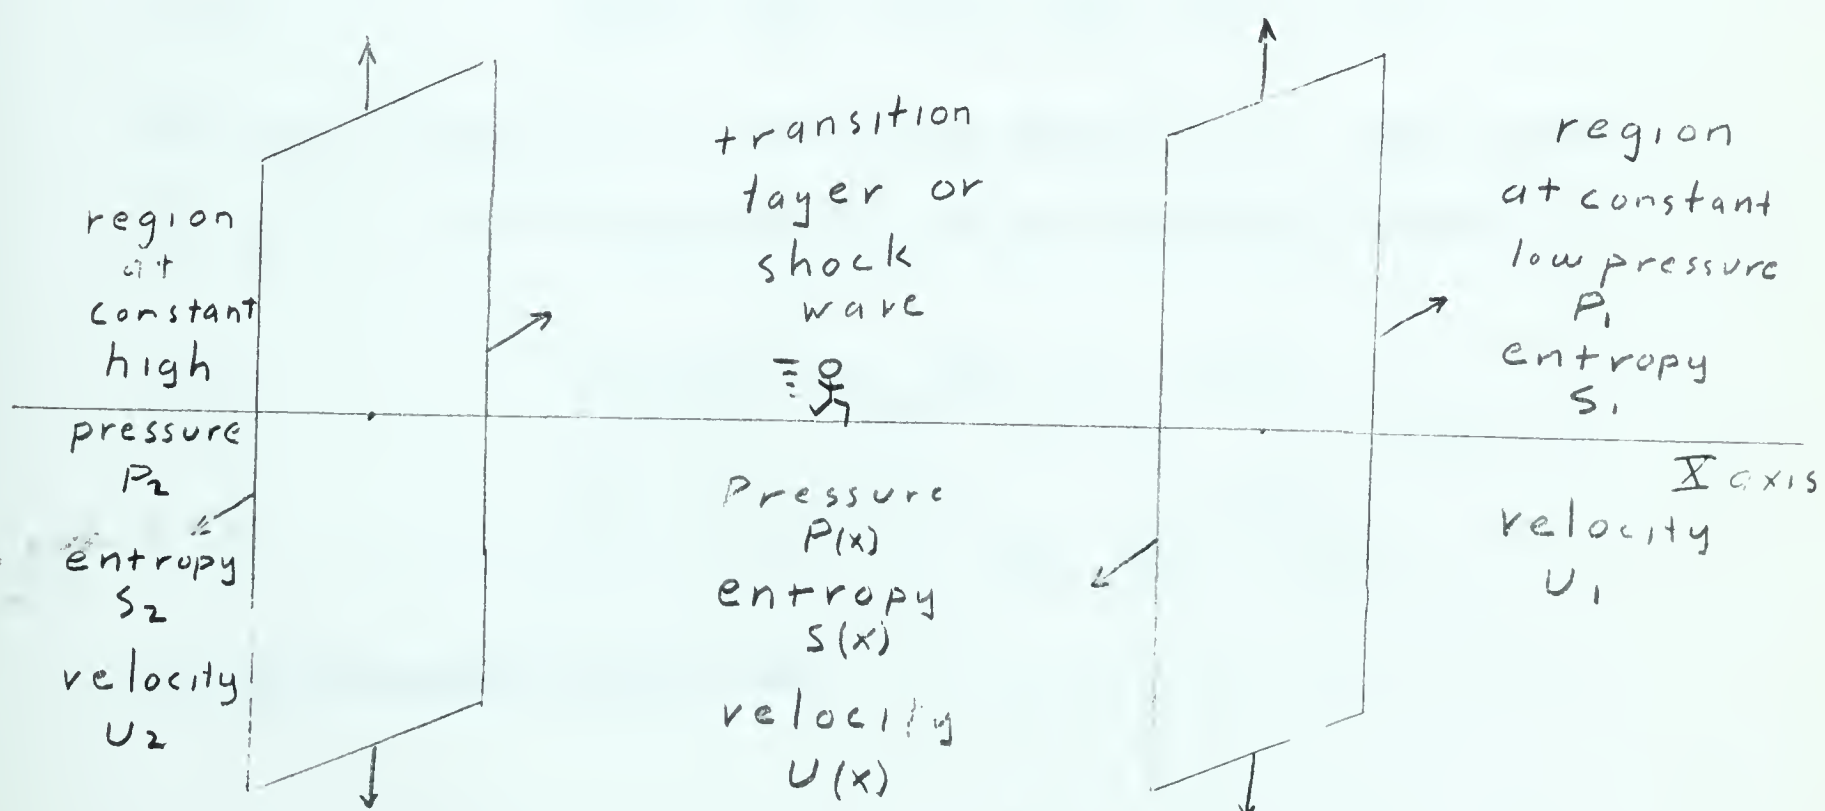 region
at
constant
high
pressure
P2
entropy
S2
velocity
U2
transition
layer or
shock
wave
Pressure
P(x)
entropy
S(x)
velocity
U(x)
region
at constant
low pressure
P1
entropy
S1
X axis
velocity
U1